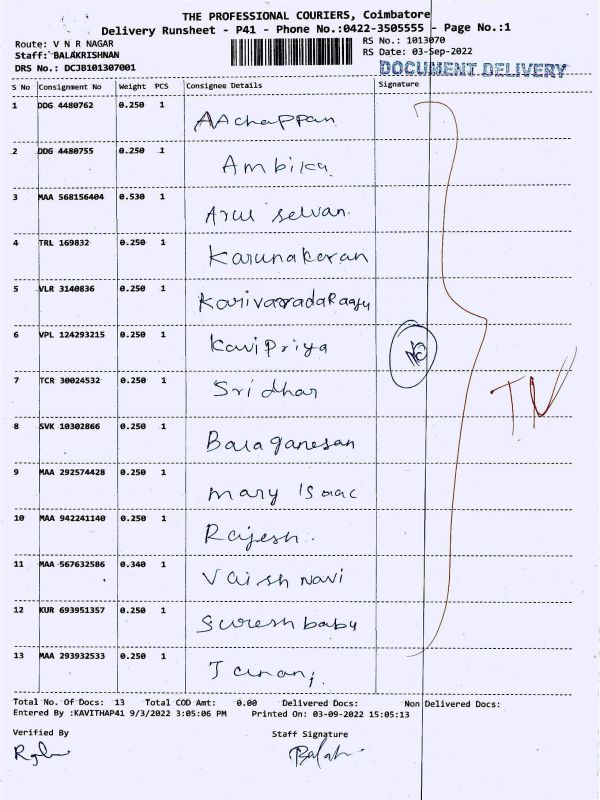 THE PROFESSIONAL COURIERS, Coimbatore
Delivery Runsheet - P41 - Phone No.:0422-3505555 - Page No.:1
Route: V N R NAGAR RS No.: 1013070
Staff: BALAKRISHNAN RS Date: 03-Sep-2022
DRS No.: DCJB101307001 DOCUMENT DELIVERY
S No Consignment No Weight PCS Consignee Details Signature
1 DDG 4480762 0.250 1 AAchappan
2 DDG 4480755 0.250 1 Ambika
3 MAA 568156404 0.530 1 Arul selvan
4 TRL 169832 0.250 1 Karunakaran
5 VLR 3140836 0.250 1 KarivaradaRaaju
6 VPL 124293215 0.250 1 KaviPriya NC
7 TCR 30024532 0.250 1 Sridhar TN
8 SVK 10302866 0.250 1 Balaganesan
9 MAA 292574428 0.250 1 mary Isaac
10 MAA 942241140 0.250 1 Rajesh
11 MAA 567632586 0.340 1 Vaishnavi
12 KUR 693951357 0.250 1 Sureshbabu
13 MAA 293932533 0.250 1
Total No. Of Docs: 13 Total COD Amt: 0.00 Delivered Docs: Non Delivered Docs:
Entered By :KAVITHAP41 9/3/2022 3:05:06 PM Printed On: 03-09-2022 15:05:13
Verified By Staff Signature